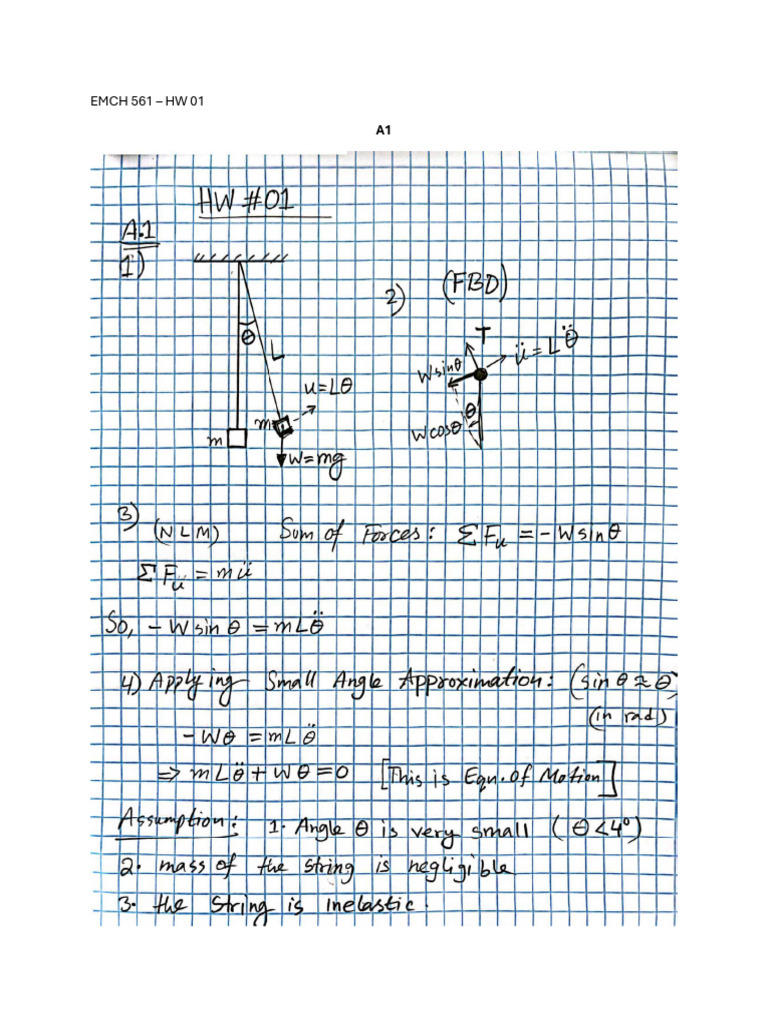 EMCH 561 – HW 01
A1
HW #01
A.1
1)
2) (FBD)
θ
L
u = Lθ
m
m
W = mg
T
ü = Lθ̈
W sinθ
θ
W cosθ
3) (NLM) Sum of Forces: ΣFᵤ = - W sinθ
ΣFᵤ = mü
So, - W sin θ = mLθ̈
4) Applying Small Angle Approximation: (sin θ ≈ θ)
(in rad)
- Wθ = mLθ̈
⇒ mLθ̈ + Wθ = 0 [This is Eqn. of Motion]
Assumption: 1. Angle θ is very small (θ < 4°)
2. mass of the string is negligible
3. the string is inelastic.